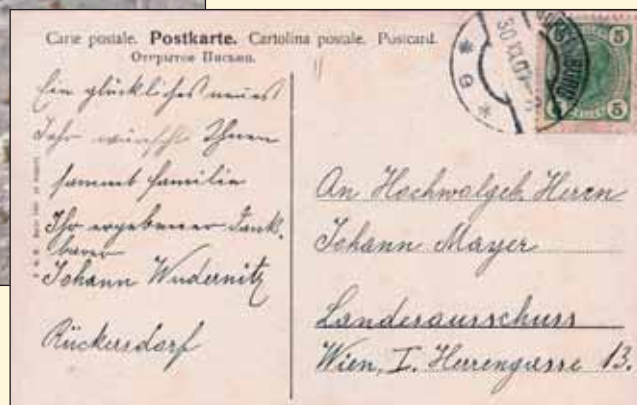 Carte postale. Postkarte. Cartolina postale. Postcard.
Открытое Письмо.
5 5
5 5
30 XII 0
6
Ein glückliches neues
Jahr wünscht Ihnen
sammt Familie
Ihr ergebener dank-
barer
Johann Wudernitz
Rückersdorf
An Hochwolgeb. Herrn
Johann Mayer
Landesausschuss
Wien, I. Herrengasse 13.